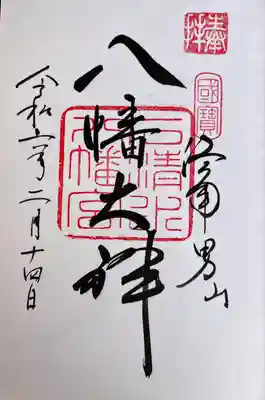 奉拝
國寶
洛南男山
八幡大神
石清水
八幡宮
令和六年二月十四日